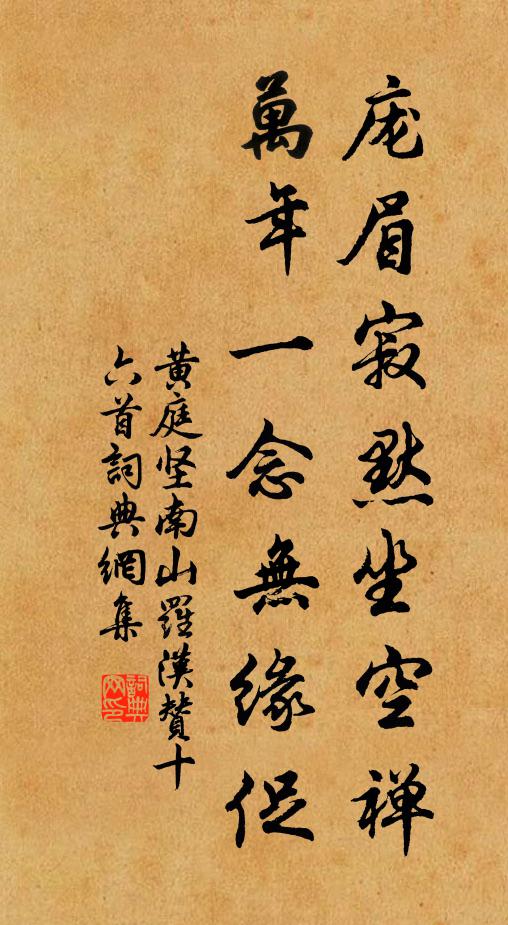 庞眉寂默坐空禅
萬年一念無緣促
黄庭坚南山羅漢赞十
六首詞典網集
詞典
网印